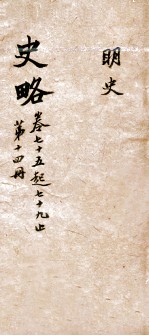 明史
史略
卷七十五起七十九止
第十四冊